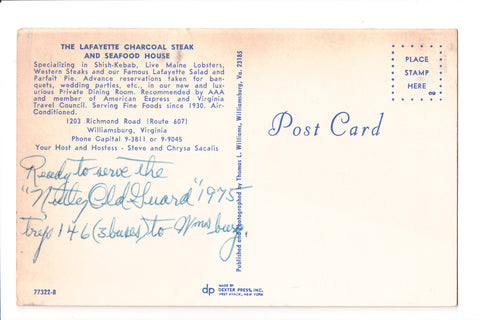 THE LAFAYETTE CHARCOAL STEAK
AND SEAFOOD HOUSE
Specializing in Shish-Kebab, Live Maine Lobsters,
Western Steaks and our Famous Lafayette Salad and
Parfait Pie. Advance reservations taken for ban-
quets, wedding parties, etc., in our new and lux-
urious Private Dining Room. Recommended by AAA
and member of American Express and Virginia
Travel Council. Serving Fine Foods since 1930. Air-
Conditioned.
1203 Richmond Road (Route 607)
Williamsburg, Virginia
Phone Capital 9-3811 or 9-9045
Your Host and Hostess - Steve and Chrysa Sacalis
Ready to serve the
"Nutley Old Guard" 1975
trip 146 (3 buses) to Wmsburg
77322-B
Published and photographed by Thomas L. Williams, Williamsburg, Va. 23185
dp
MADE BY
DEXTER PRESS, INC.
WEST NYACK, NEW YORK
Post Card
PLACE
STAMP
HERE